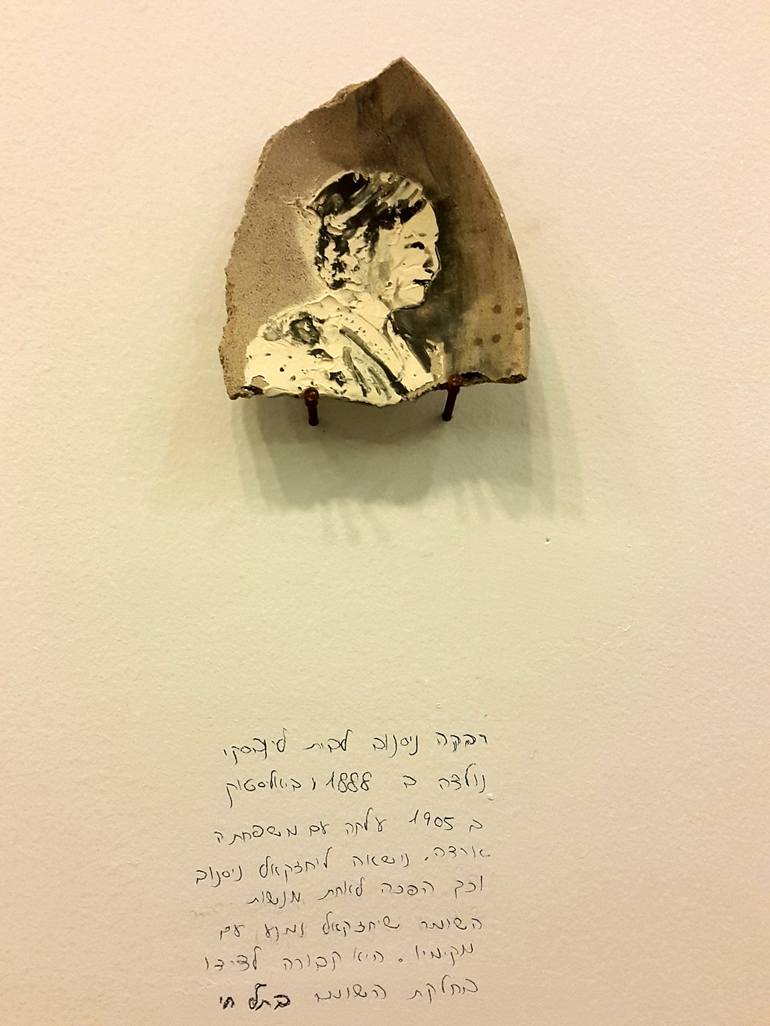 רבקה ניסנוב לבית ליבסקי
נולדה ב 1888, ביאליסטוק
ב 1905 עלתה עם משפחתה
ארצה. נישאה ליחזקאל ניסנוב
וכך הפכה לאחת מנשות
השומר שיחזקאל נמנע עם
מקימיו. היא קבורה לצידו
בחלקת השומר בתל חי